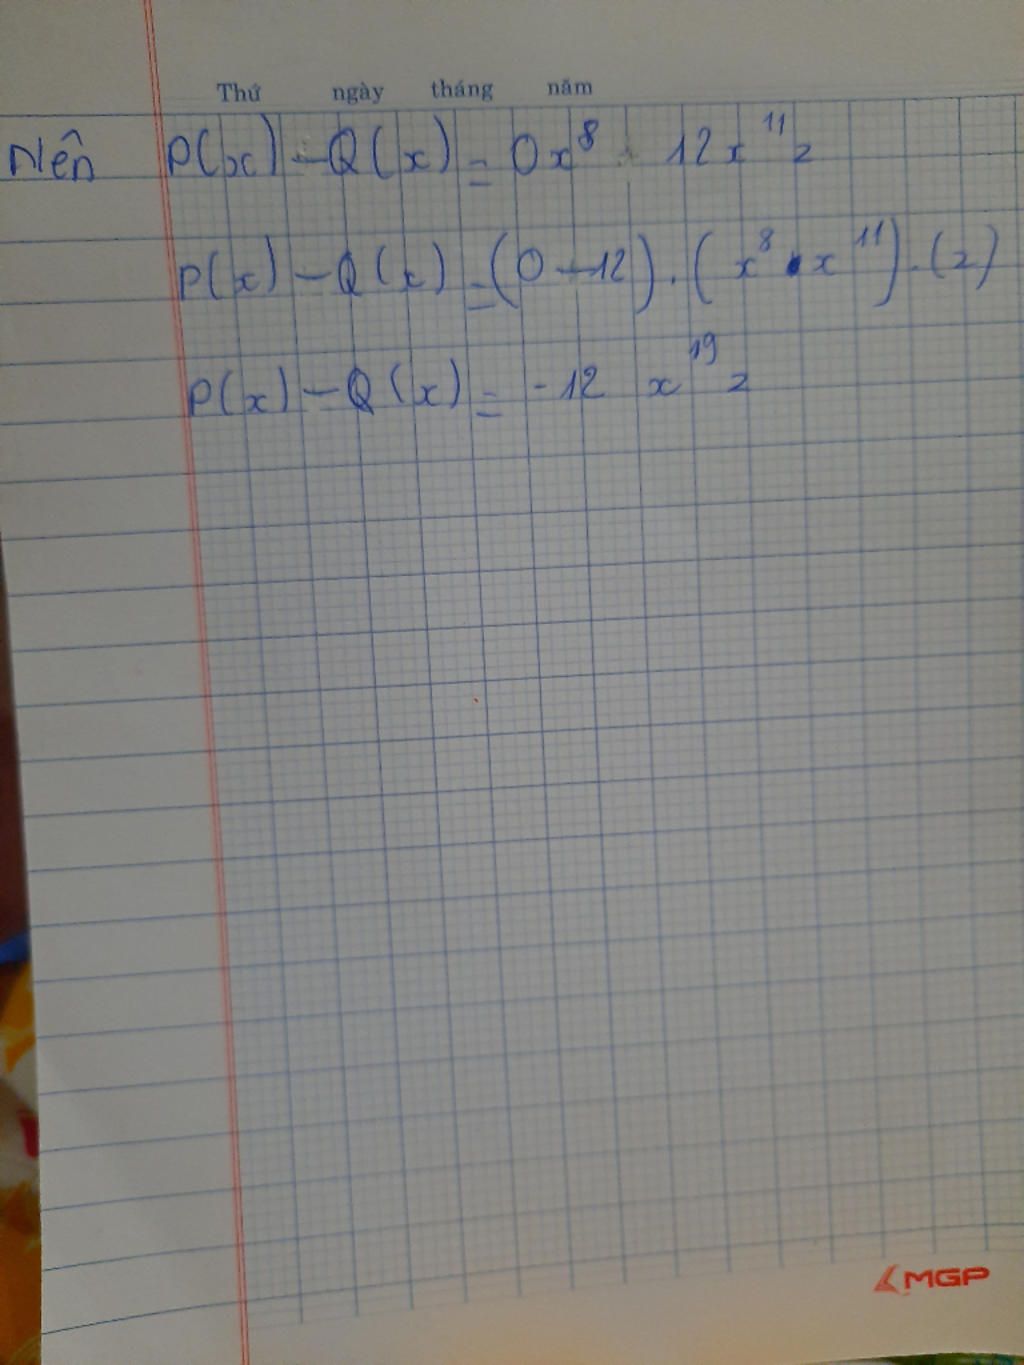 Thứ ngày tháng năm
Nên P(x) - Q(x) = 0x⁸ - 12x¹¹z
P(x) - Q(x) = (0 - 12) . (x⁸ . x¹¹) . (z)
P(x) - Q(x) = -12 x¹⁹ z
MGP